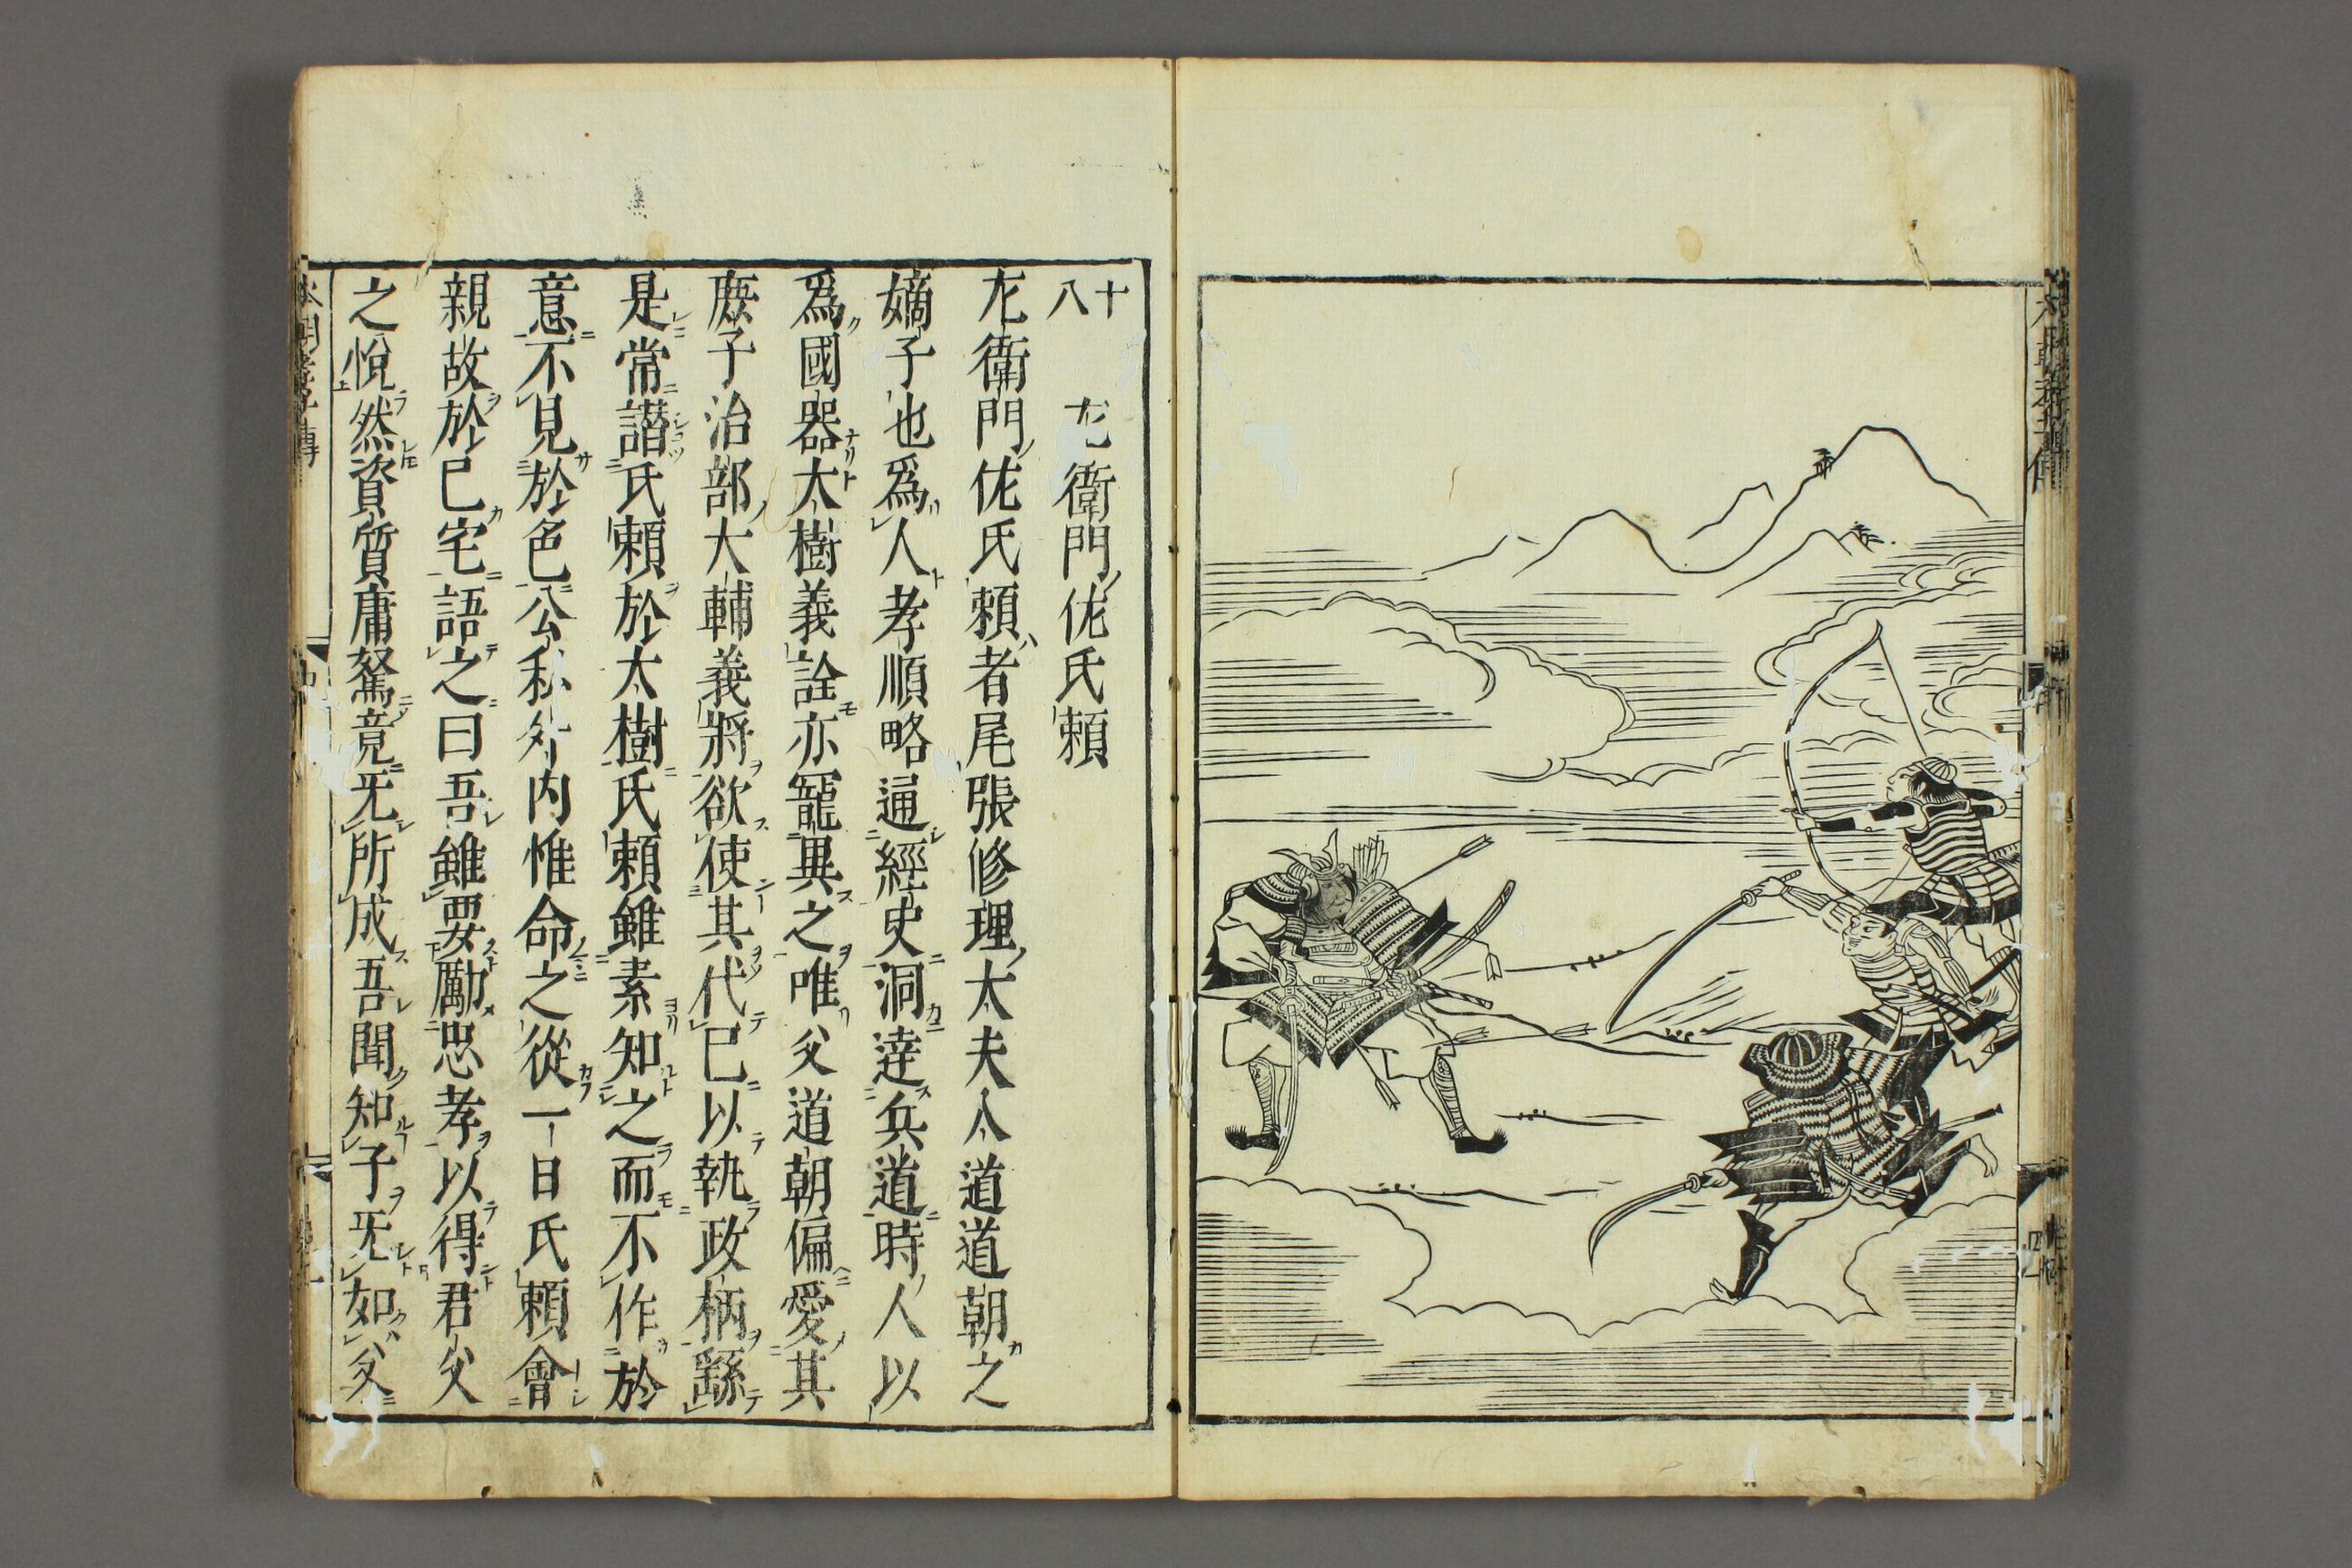 十八
左衛門佐氏頼
左衛門佐氏頼者尾張修理太夫入道道朝之
嫡子也爲人孝順略通經史洞達兵道時人以
爲國器太樹義詮亦寵異之唯父道朝偏愛其
庶子治部大輔義將欲使其代已以執政柄繇
是常譖氏頼於太樹氏頼雖素知之而不作於
意不見於色公私外内惟命之從一日氏頼會
親故於已宅語之曰吾雖要勵忠孝以得君父
之悅然資質庸駑竟无所成吾聞知子无如父